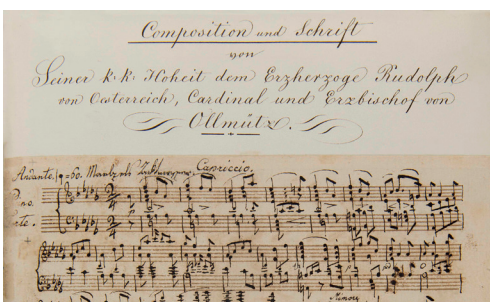 Composition und Schrift
von
Seiner k. k. Hoheit dem Erzherzoge Rudolph
von Oesterreich, Cardinal und Erzbischof von
Ollmütz.
Andante. =50. Maelzels Capriccio.
no.
rte.